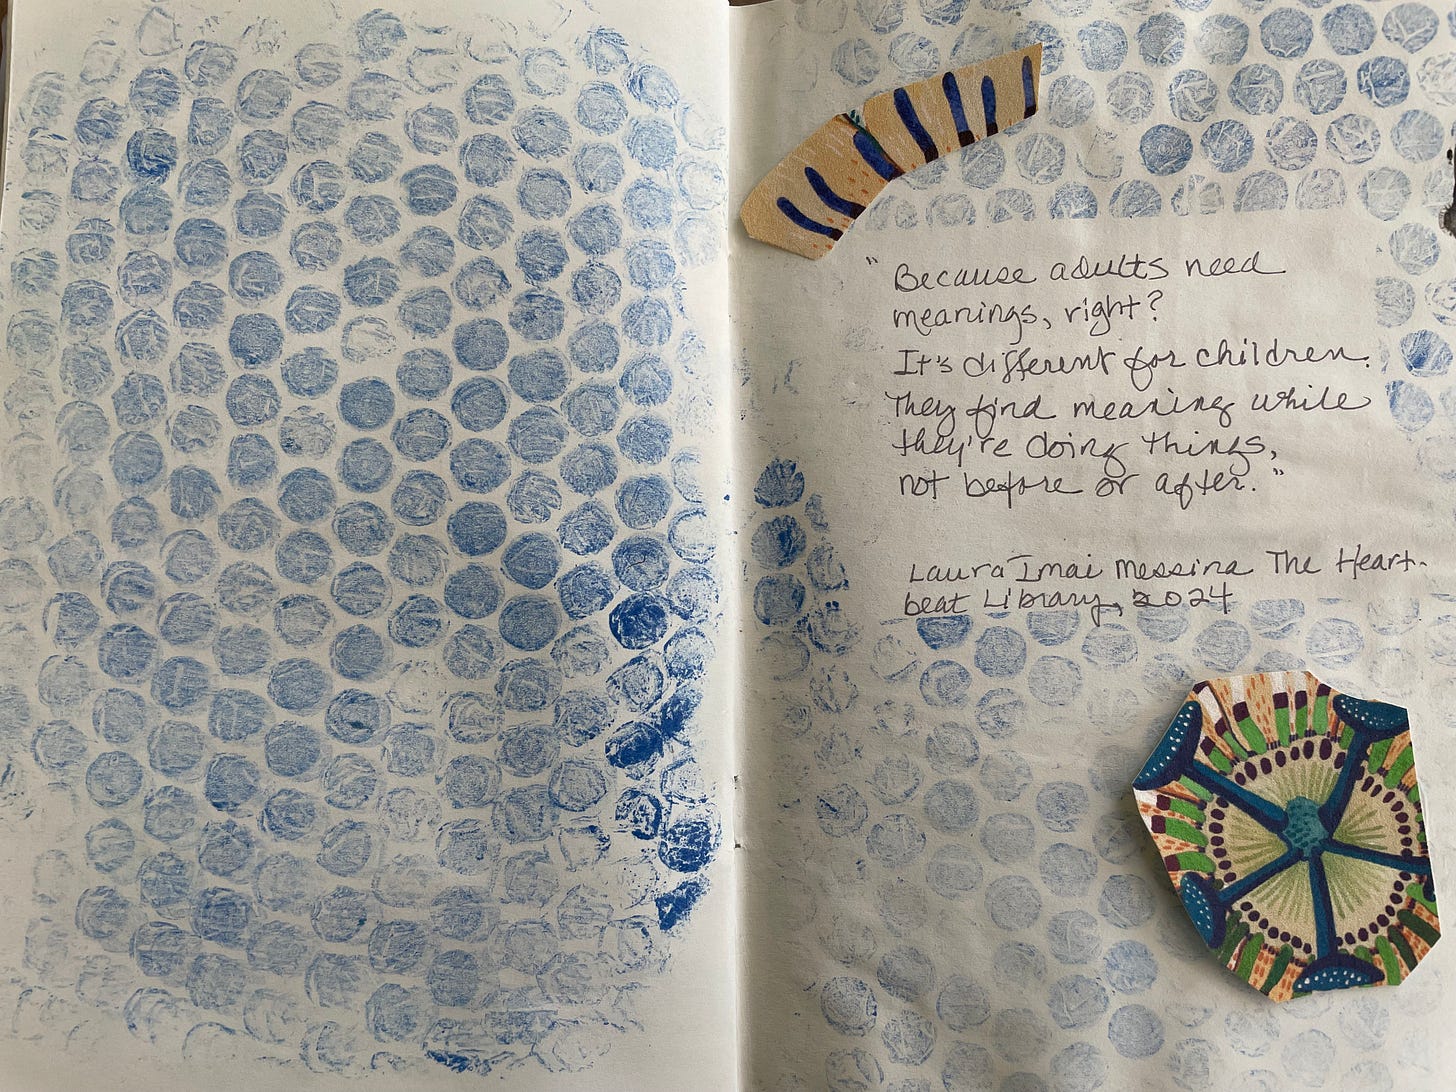 "Because adults need
meanings, right?
It's different for children.
They find meaning while
they're doing things,
not before or after."
Laura Imai Messina The Heart-
beat Library, 2024